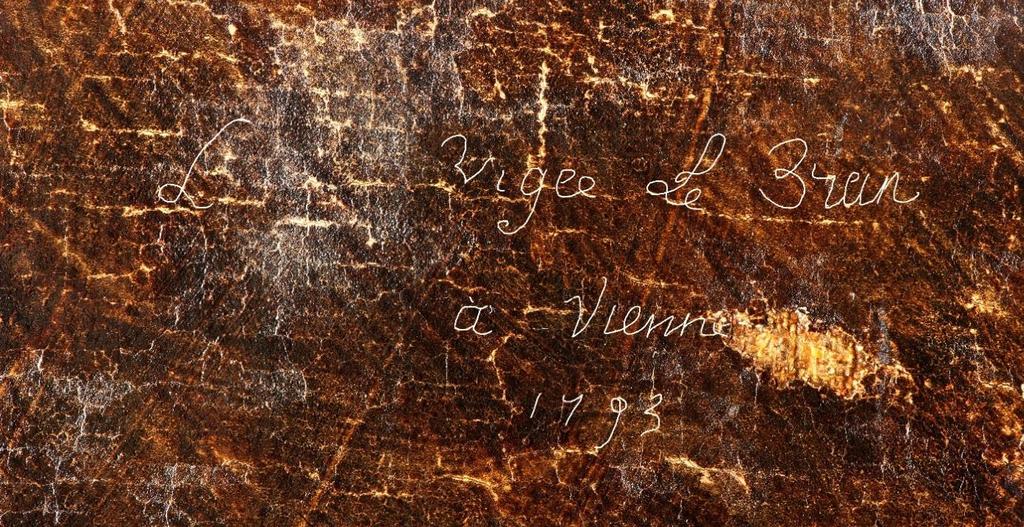 L Vigee Le Brun
à Vienne
1793